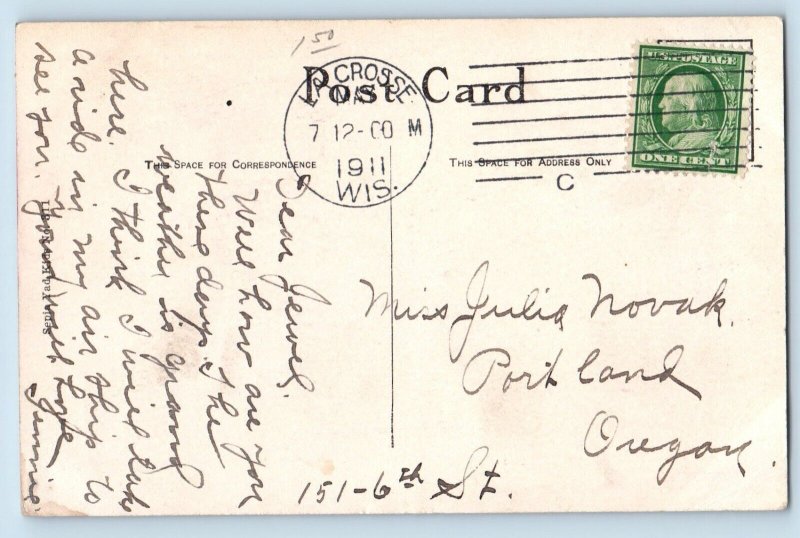 1 50
Post Card
LA CROSSE
MA
7 12-00 M
1911
WIS.
C
U.S. POSTAGE
ONE CENT
THIS SPACE FOR CORRESPONDENCE
THIS SPACE FOR ADDRESS ONLY
Dear Jewel.
Well how are you
these days. The
weather is grand
here. I think I will take
a ride in my air ship to
see you. Yours with love
Jennie.
Miss Julia Novak.
Portland
Oregon.
151-6th St.